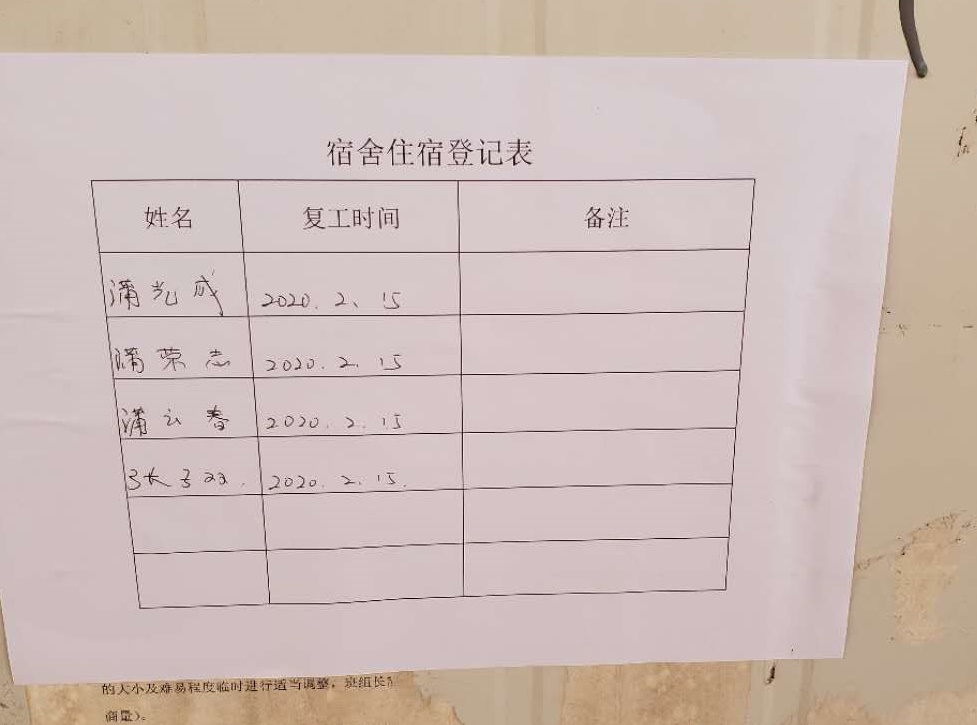 宿舍住宿登记表
姓名 复工时间 备注
蒲光成 2020.2、15
蒲荣志 2020.2.15
蒲云春 2020.2.15
张子双. 2020.2.15.
的大小及难易程度临时进行适当调整，班组长
商量）。